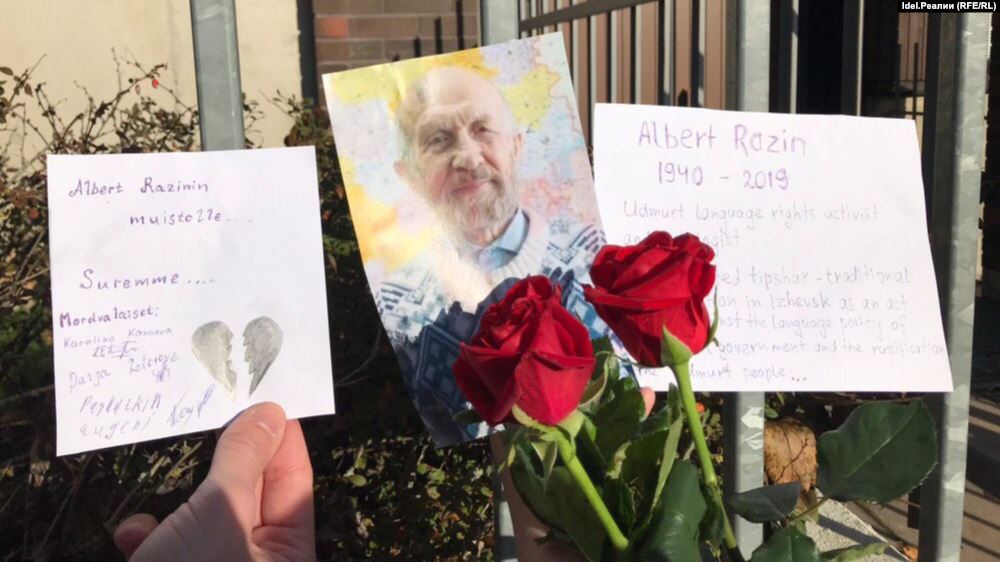 Idel.Реалии (RFE/RL)
Albert Razinin
muistolle....
Suremme....
Mordvalaiset:
Karolina Kanaeva
Darja Zolotova
Eugeni
Albert Razin
1940 - 2019
Udmurt language rights activist
ed tipshar - traditional
ion in Izhevsk as an act
nst the language policy of
government and the russification
murt people...